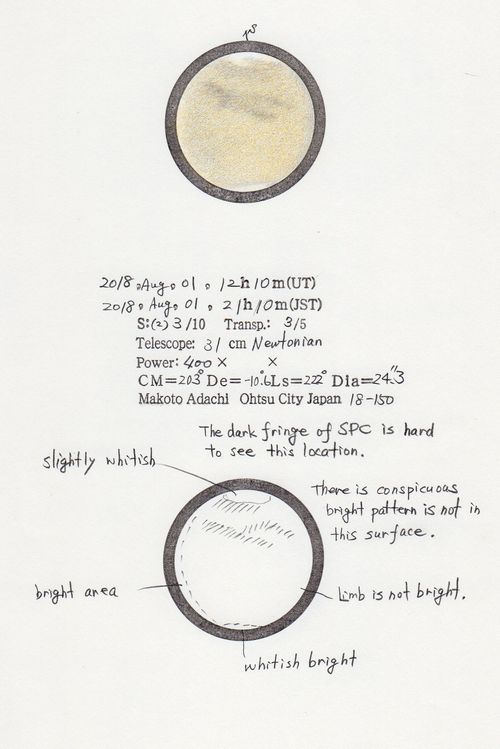 S
2018, Aug. 01, 12h10m(UT)
2018, Aug. 01, 21h10m(JST)
S:(2)3/10 Transp.: 3/5
Telescope: 31 cm Newtonian
Power: 400 × ×
CM=203° De=-10.°6 Ls=222° Dia=24."3
Makoto Adachi Ohtsu City Japan 18-150
The dark fringe of SPC is hard
to see this location.
slightly whitish
There is conspicuous
bright pattern is not in
this surface.
bright area
Limb is not bright.
whitish bright